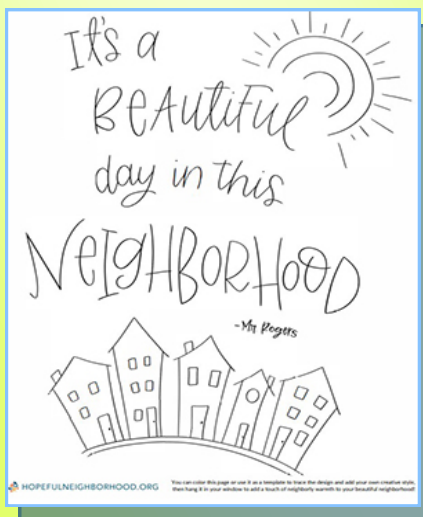 It's a
BeAutiFul
day in this
NeIgHBoRHooD
-Mr Rogers
HOPEFULNEIGHBORHOOD.ORG
You can color this page or use it as a template to trace the design and add your own creative style,
then hang it in your window to add a touch of neighborly warmth to your beautiful neighborhood!